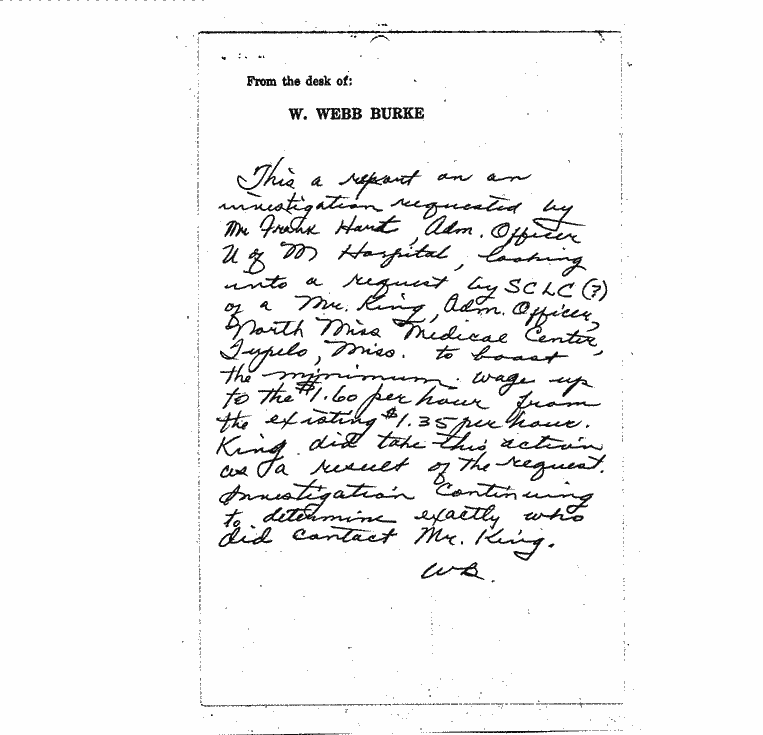 From the desk of:
W. WEBB BURKE
This a report on an
investigation requested by
Mr Frank Hart, Adm. Officer
U of M Hospital, looking
into a request by SCLC (?)
of a Mr. King, Adm. Officer,
North Miss Medical Center,
Tupelo, Miss. to boost
the minimum wage up
to the $1.60 per hour from
the existing $1.35 per hour.
King did take this action
as a result of the request.
Investigation Continuing
to determine exactly who
did contact Mr. King.
WB.